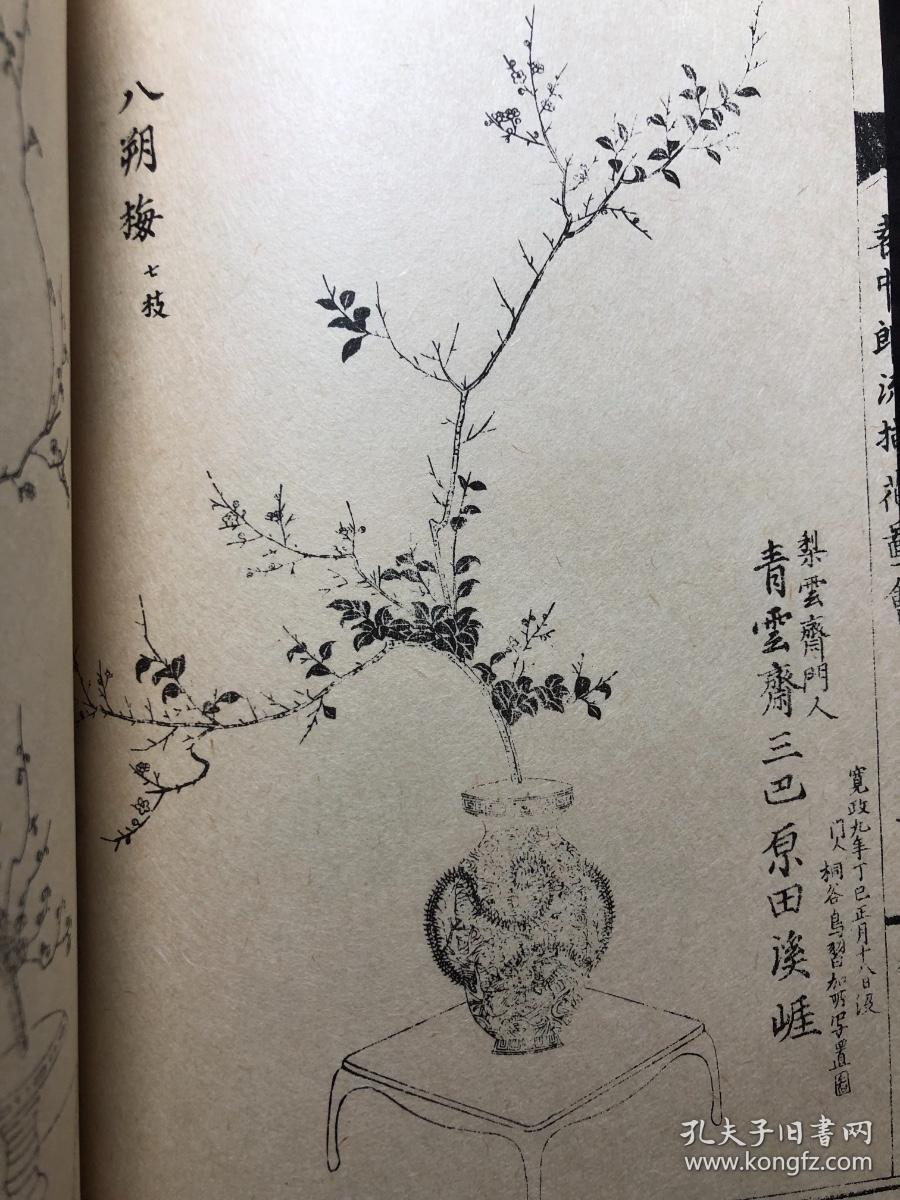 中郎流挿花圖會
梨雲齋門人
青雲齋三巴原田溪崕
寛政九年丁巳正月十八日
門人桐谷鳥習
写置圖
八朔梅
七枝
孔夫子旧书网
www.kongfz.com